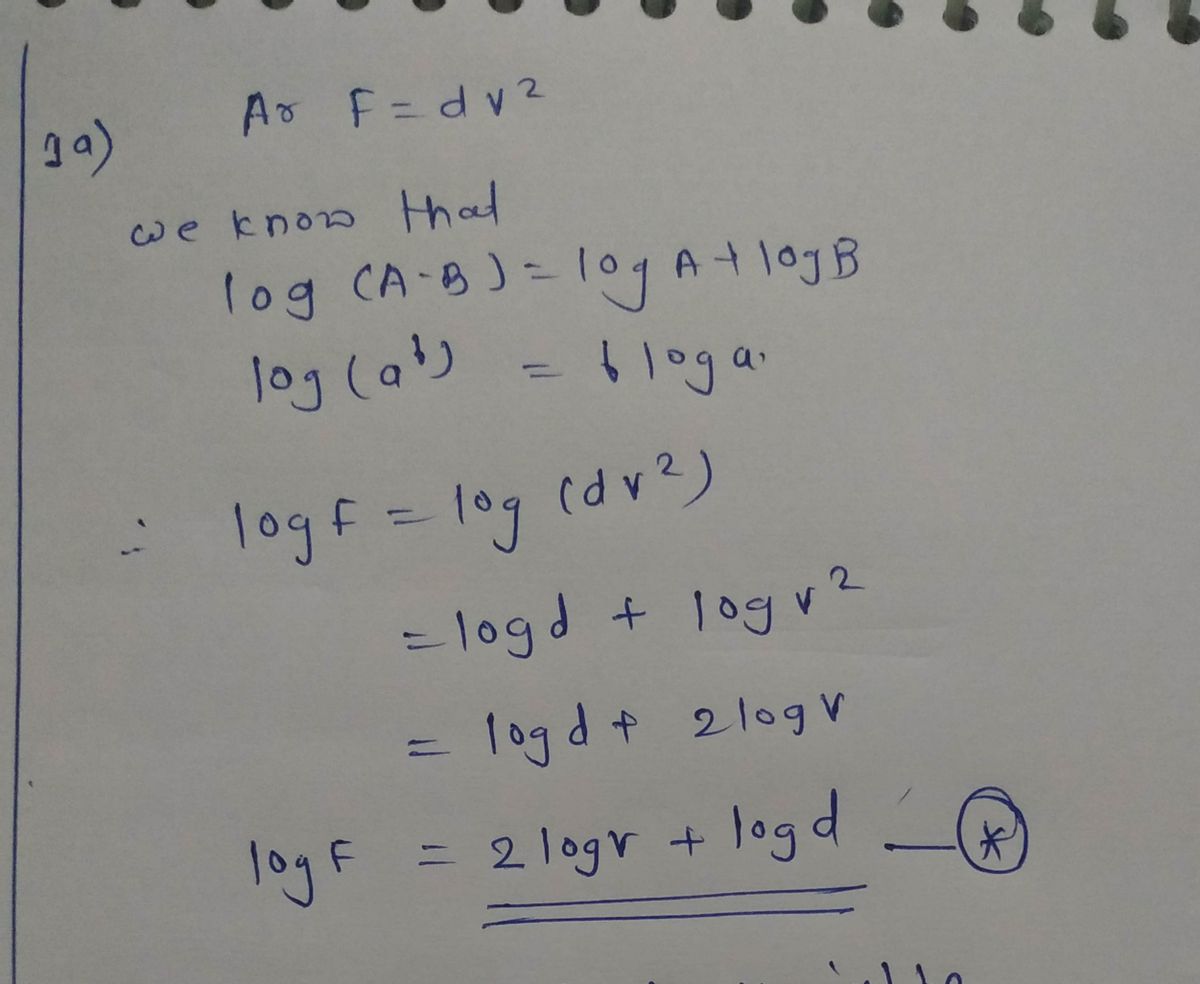 Ar F = dv²
1a)
we know that
log (A·B) = log A + log B
log (aᵇ) = b log a.
∴ log F = log (dv²)
= log d + log v²
= log d + 2 log v
log F = 2 log v + log d — *